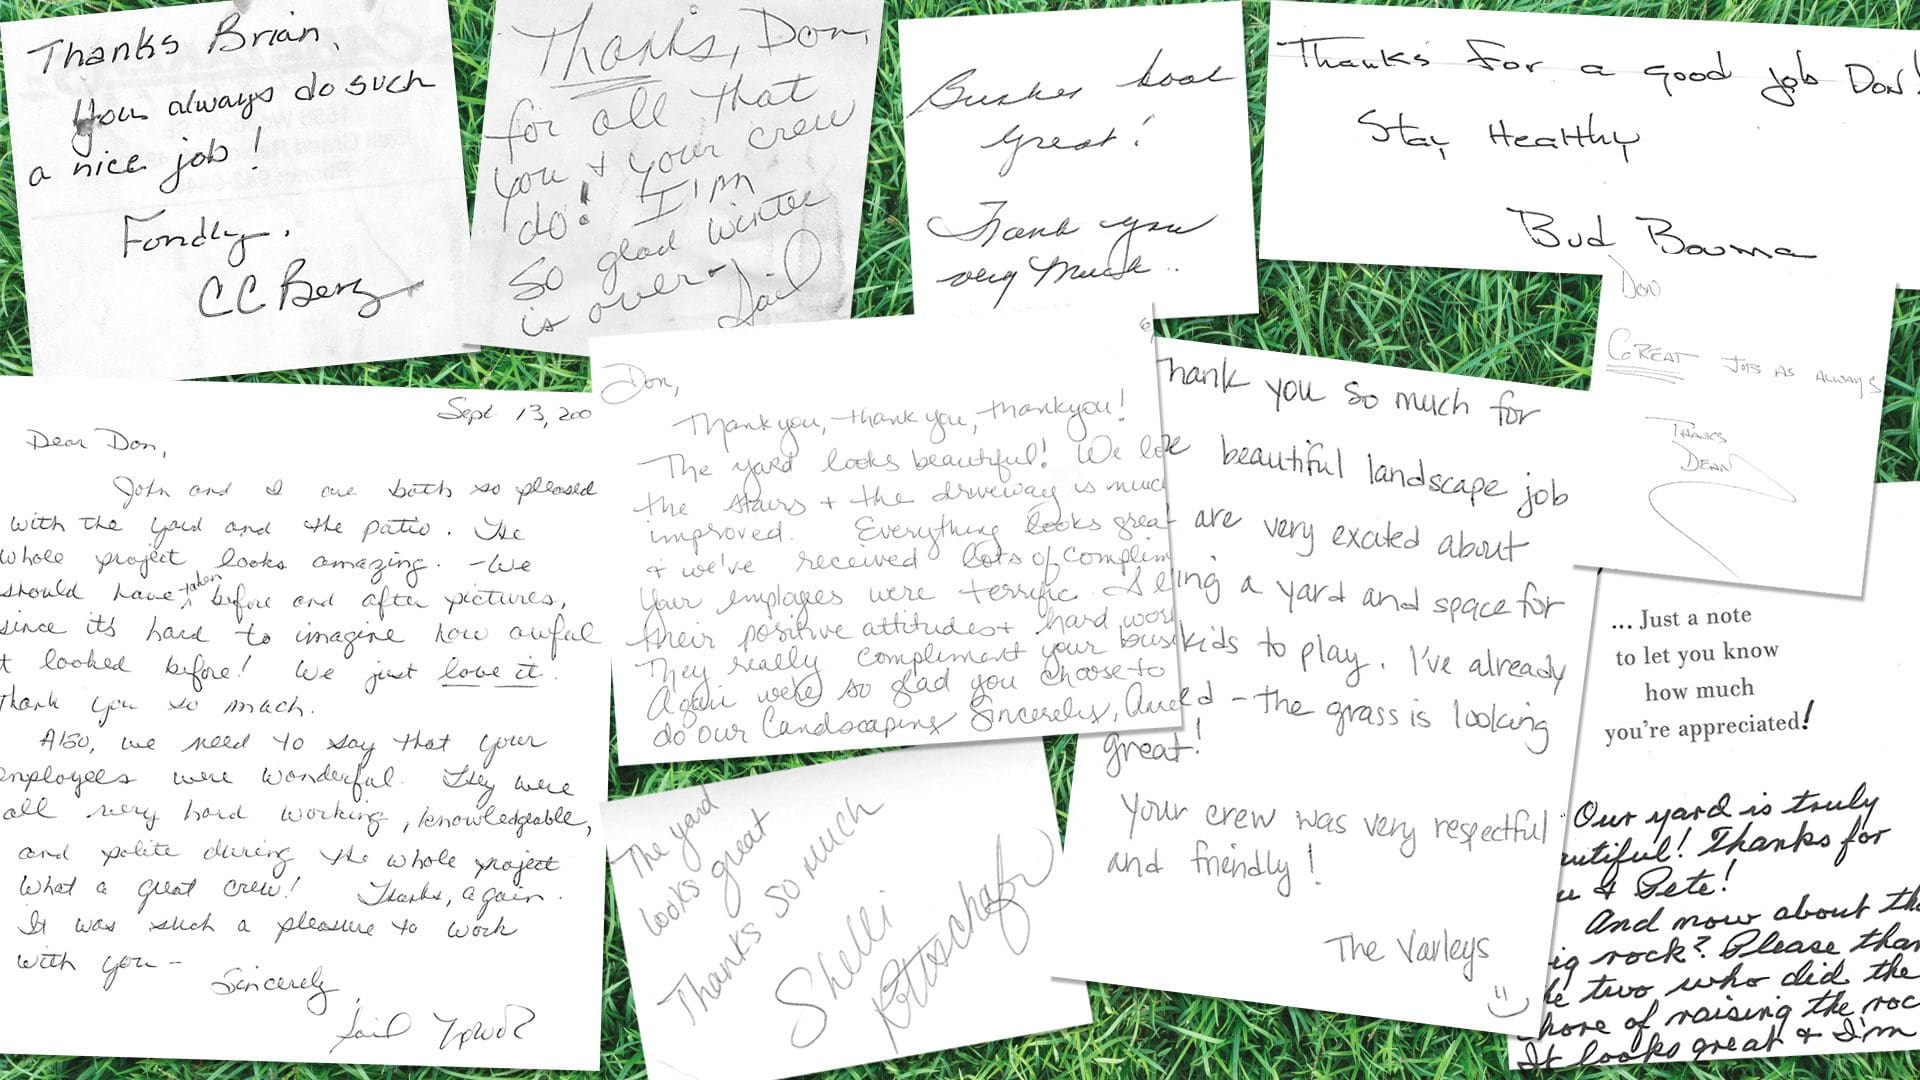 Thanks Brian,
You always do such
a nice job!
Fondly,
CC Berg
Thanks, Don,
for all that
you & your crew
do! I'm
so glad winter
is over-
Gail
Bushes look
great!
Thank you
very much..
Thanks For a good job Don!
Stay Healthy
Bud Bouma
Don
GREAT JOB AS ALWAYS
THANKS
DEAN
Sept. 13, 200
Dear Don,
John and I are both so pleased
with the yard and the patio. The
whole project looks amazing. -We
should have taken before and after pictures,
since it's hard to imagine how awful
t looked before! We just love it.
Thank you so much.
Also, we need to say that your
employees were wonderful. They were
all very hard working, knowledgeable,
and polite during the whole project
What a great crew! Thanks, again.
It was such a pleasure to work
with you-
Sincerely,
Gail
Don,
Thank you, thank you, thank you!
The yard looks beautiful! We lo
the stairs & the driveway is muc
improved. Everything looks grea
& we've received lots of complim
Your employees were terrific.
their positive attitudes & hard wor
They really compliment your busi
Again we're so glad you choose to
do our landscaping Sincerely,
hank you so much for
e beautiful landscape job
are very excited about
ing a yard and space for
kids to play. I've already
d - the grass is looking
great!
Your crew was very respectful
and friendly!
The Varleys
The yard
looks great
Thanks so much
Shelli
... Just a note
to let you know
how much
you're appreciated!
Our yard is truly
autiful! Thanks for
u & Pete!
And now about th
ig rock? Please than
e two who did the
hore of raising the roc
It looks great & I'm